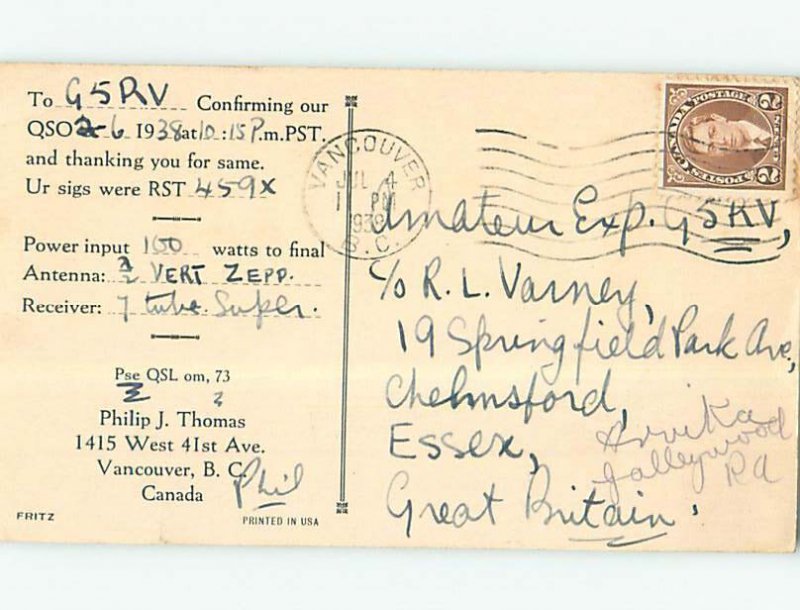 To G5RV Confirming our
QSO 2-6 1938 at 10:15 P.m. PST.
and thanking you for same.
Ur sigs were RST 459X
Power input 100 watts to final
Antenna: λ/2 VERT ZEPP.
Receiver: 7 tube Super.
Pse QSL om, 73
Philip J. Thomas
1415 West 41st Ave.
Vancouver, B. C.
Canada Phil
FRITZ
PRINTED IN USA
VANCOUVER
JUL 4
PM
B.C.
CANADA POSTAGE
POSTES
2 2
Amateur Exp. G5RV,
c/o R. L. Varney,
19 Springfield Park Ave,
Chelmsford,
Essex,
Great Britain.
RA